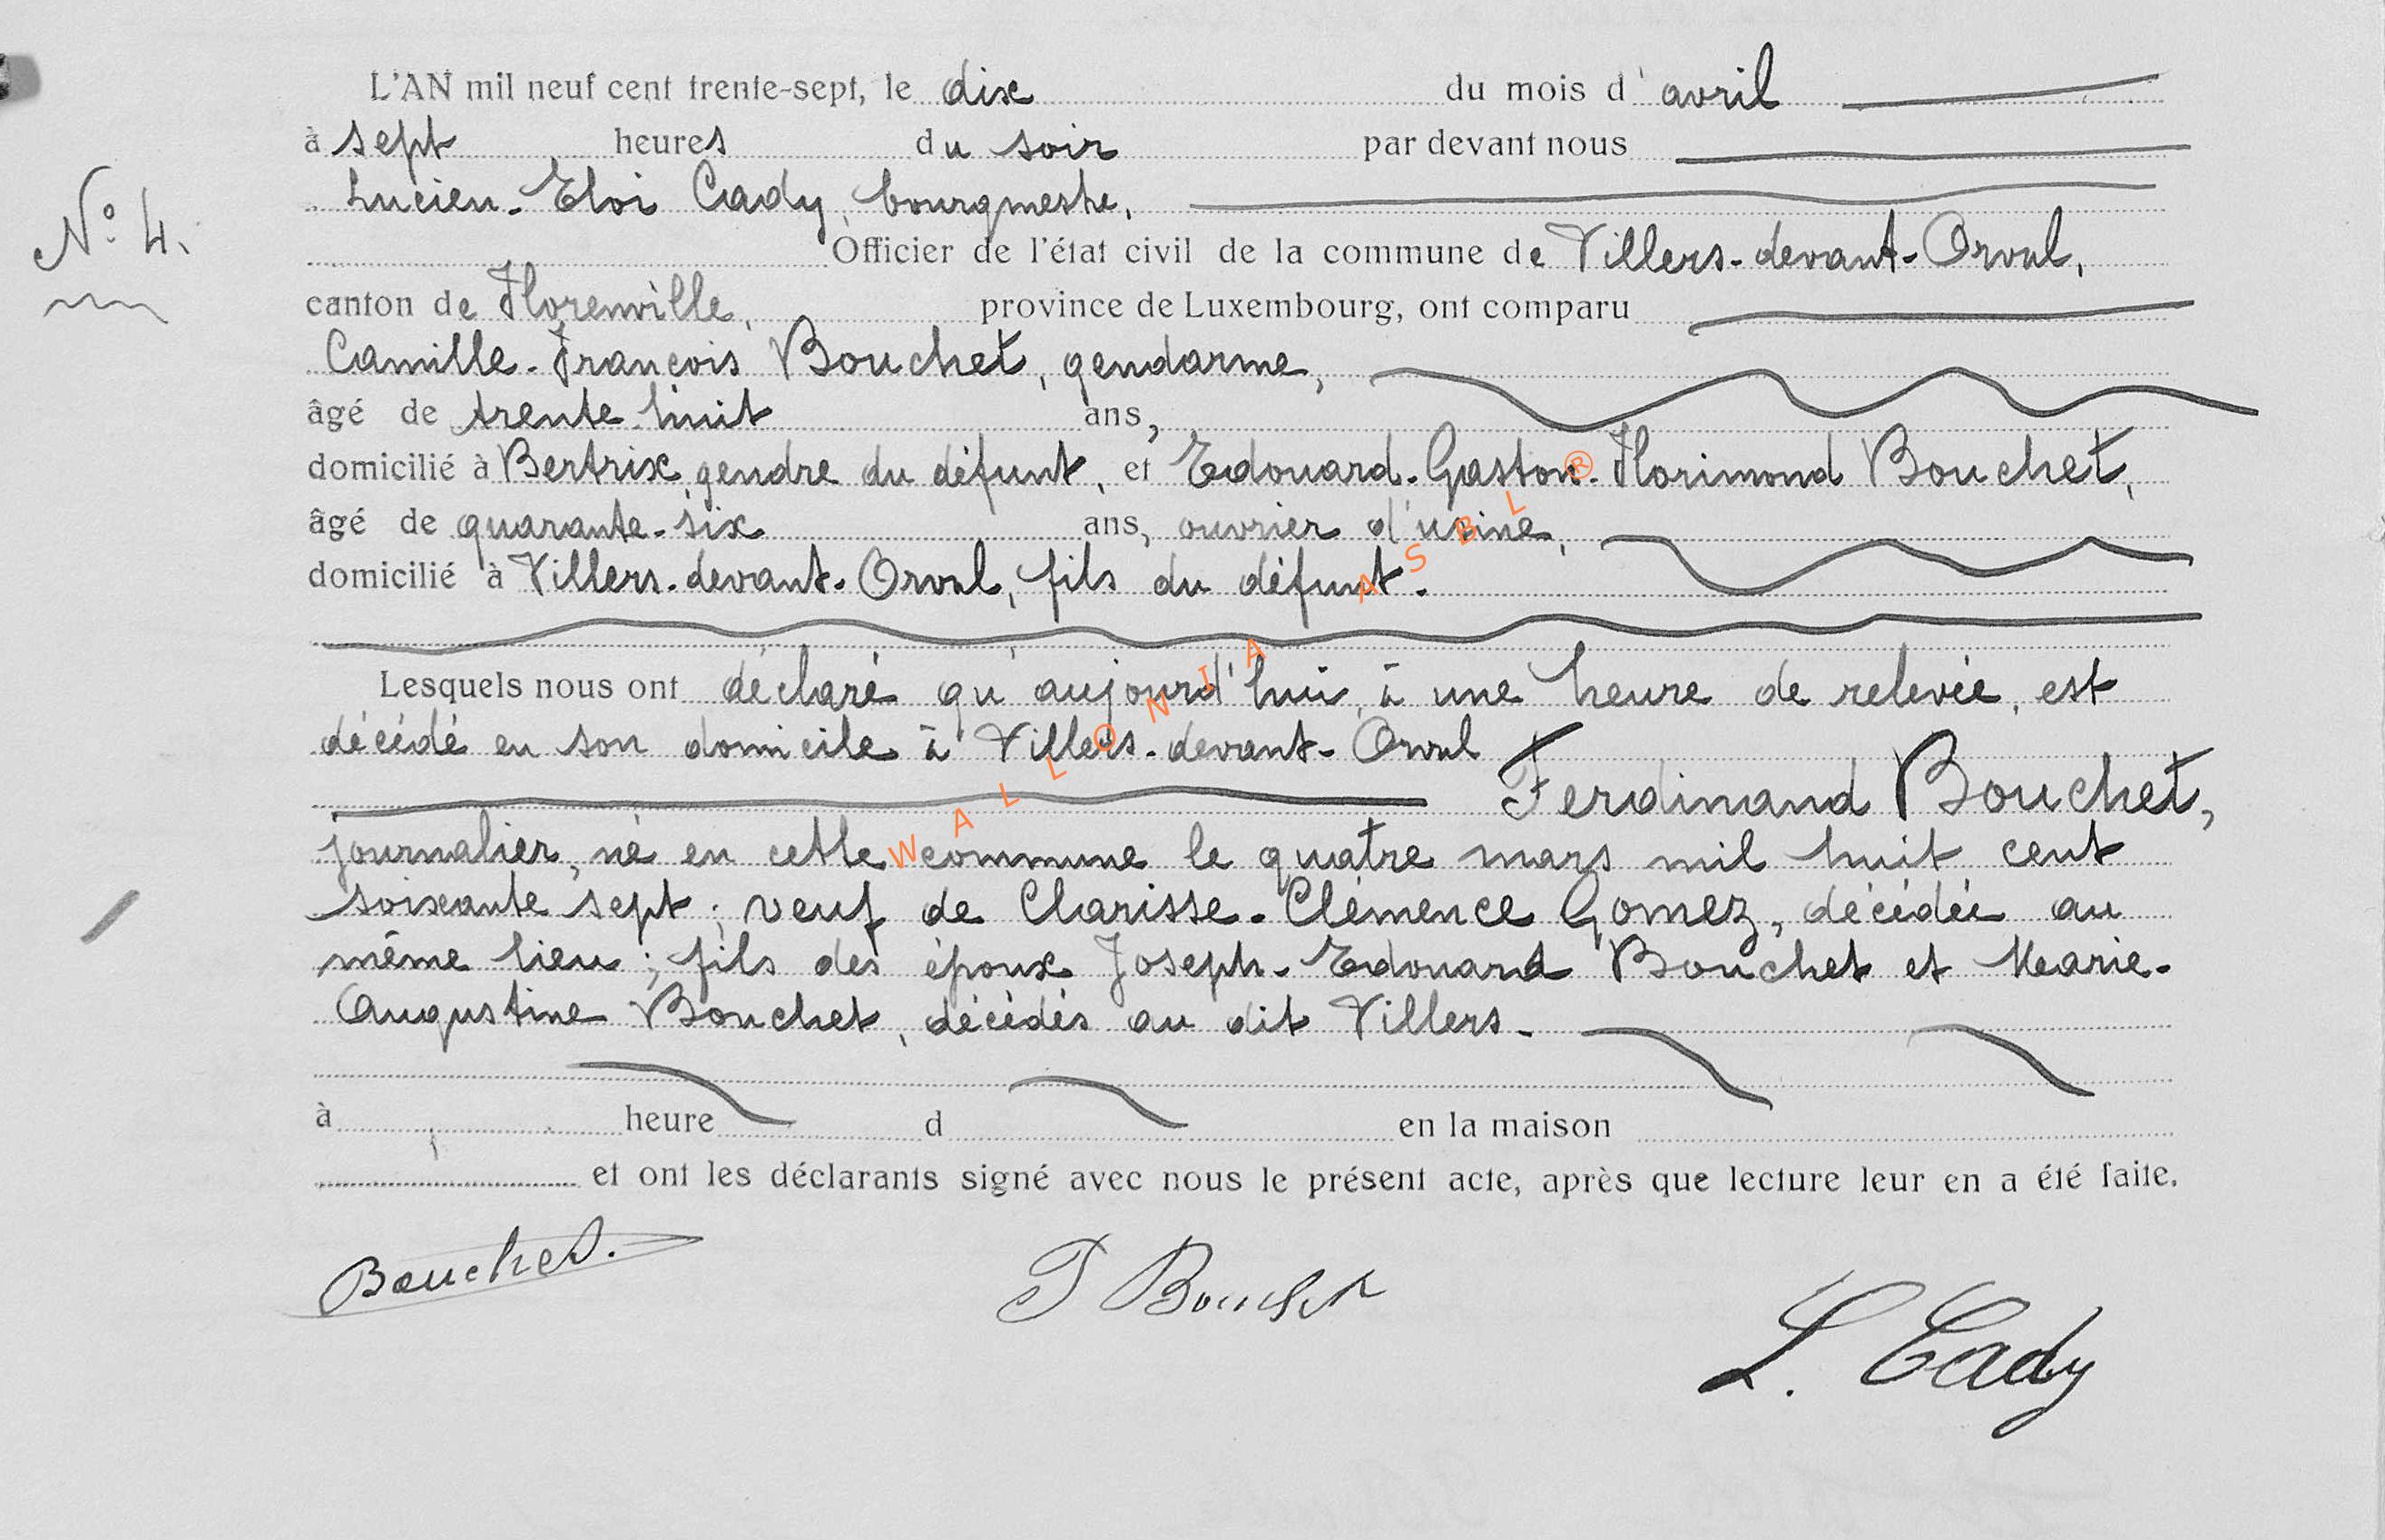 L'AN mil neuf cent trente-sept, le dix du mois d'avril
à sept heures du soir par devant nous
N° 4.
Lucien-Eloi Cady, bourgmestre,
Officier de l'état civil de la commune de Villers-devant-Orval,
canton de Florenville, province de Luxembourg, ont comparu
Camille-François Bouchet, gendarme,
âgé de trente-huit ans,
domicilié à Bertrix, gendre du défunt, et Edouard-Gaston-Florimond Bouchet,
âgé de quarante-six ans, ouvrier d'usine,
domicilié à Villers-devant-Orval, fils du défunt.
Lesquels nous ont déclaré qu'aujourd'hui, à une heure de relevée, est
décédé en son domicile à Villers-devant-Orval
Ferdinand Bouchet,
journalier, né en cette commune le quatre mars mil huit cent
soixante sept; veuf de Clarisse-Clémence Gomez, décédée au
même lieu; fils des époux Joseph-Edouard Bouchet et Marie-
Augustine Bouchet, décédés au dit Villers-
à heure d en la maison
et ont les déclarants signé avec nous le présent acte, après que lecture leur en a été faite.
Bouchet.
Bouchet
L. Cady
WALLONIA ASBL®